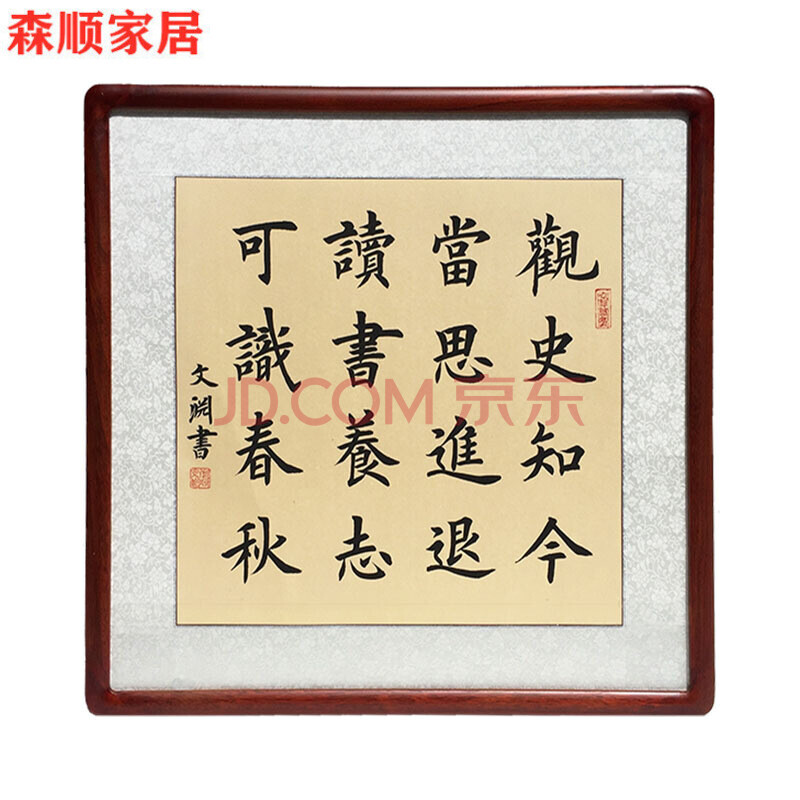 森顺家居
觀史知今
當思進退
讀書養志
可識春秋
文淵書
JD.COM 京东